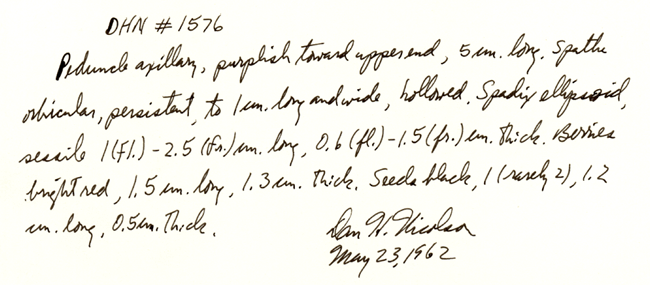 DHN # 1576
Peduncle axillary, purplish toward upper end, 5 cm. long. Spathe
orbicular, persistent, to 1 cm. long and wide, hollowed. Spadix ellipsoid,
sessile 1 (fl.) - 2.5 (fr.) cm. long, 0.6 (fl.) - 1.5 (fr.) cm. thick. Berries
bright red, 1.5 cm. long, 1.3 cm. thick. Seeds black, 1 (rarely 2), 1.2
cm. long, 0.5 cm. thick.
Dan H. Nicolson
May 23, 1962